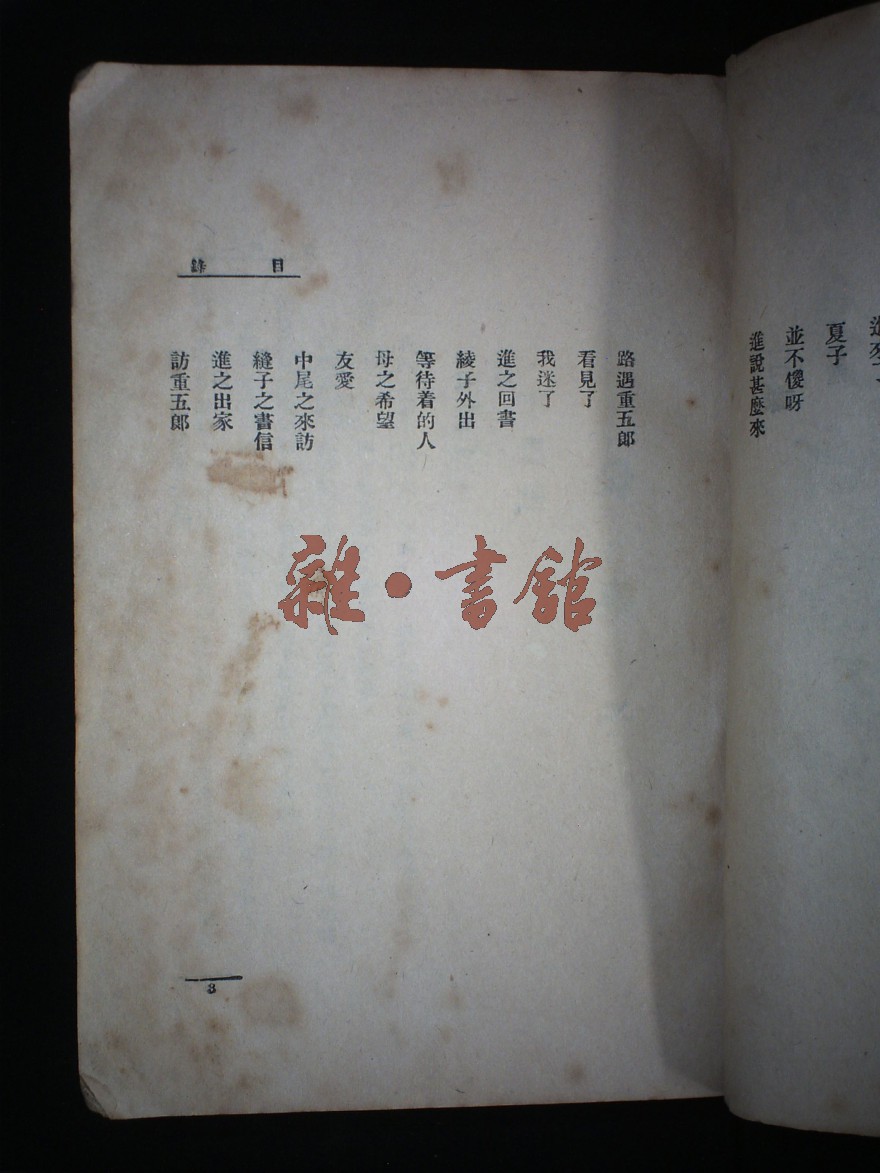 夏子
並不傻呀
進說甚麼來
目錄
路遇重五郎
看見了
我迷了
進之回書
綾子外出
等待着的人
母之希望
友愛
中尾之來訪
縫子之書信
進之出家
訪重五郎
3
雜・書館